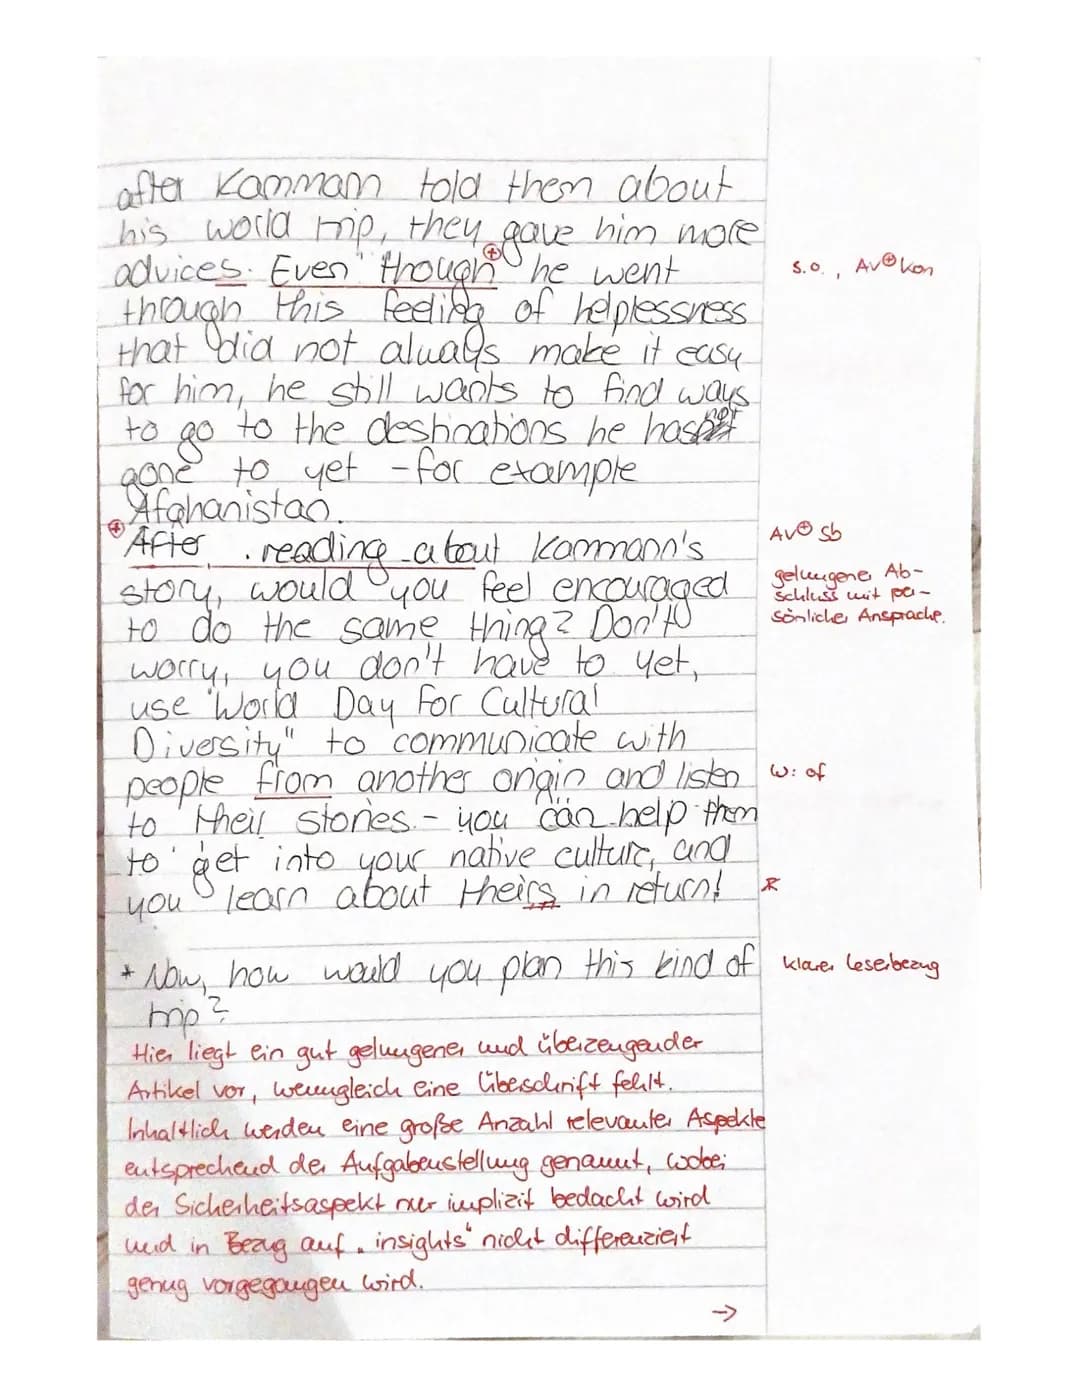 after Kammann told them about
his world trip, they gave him more
advices. Even though he went
s.o., Av⊕ Kon
through this feeling of helplessness
that did not always make it easy
for him, he still wants to find ways
to go to the destinations he has not
gone to yet - for example
Afghanistan.
After reading about Kammann's
Av⊕ Sb
story, would you feel encouraged
gelungener Ab-
schluss mit per-
sönlicher Ansprache.
to do the same thing? Don't
worry, you don't have to yet,
use "World Day For Cultural
Diversity" to communicate with
people from another origin and listen
W: of
to their stories - you can help them
to get into your native culture, and
you learn about theirs in return!
R
* Now, how would you plan this kind of
klarer Leserbezug
trip?
Hier liegt ein gut gelungener und überzeugender
Artikel vor, wenngleich eine Überschrift fehlt.
Inhaltlich werden eine große Anzahl relevanter Aspekte
entsprechend der Aufgabenstellung genannt, wobei
der Sicherheitsaspekt nur implizit bedacht wird
und in Bezug auf „insights“ nicht differenziert
genug vorgegangen wird.
→